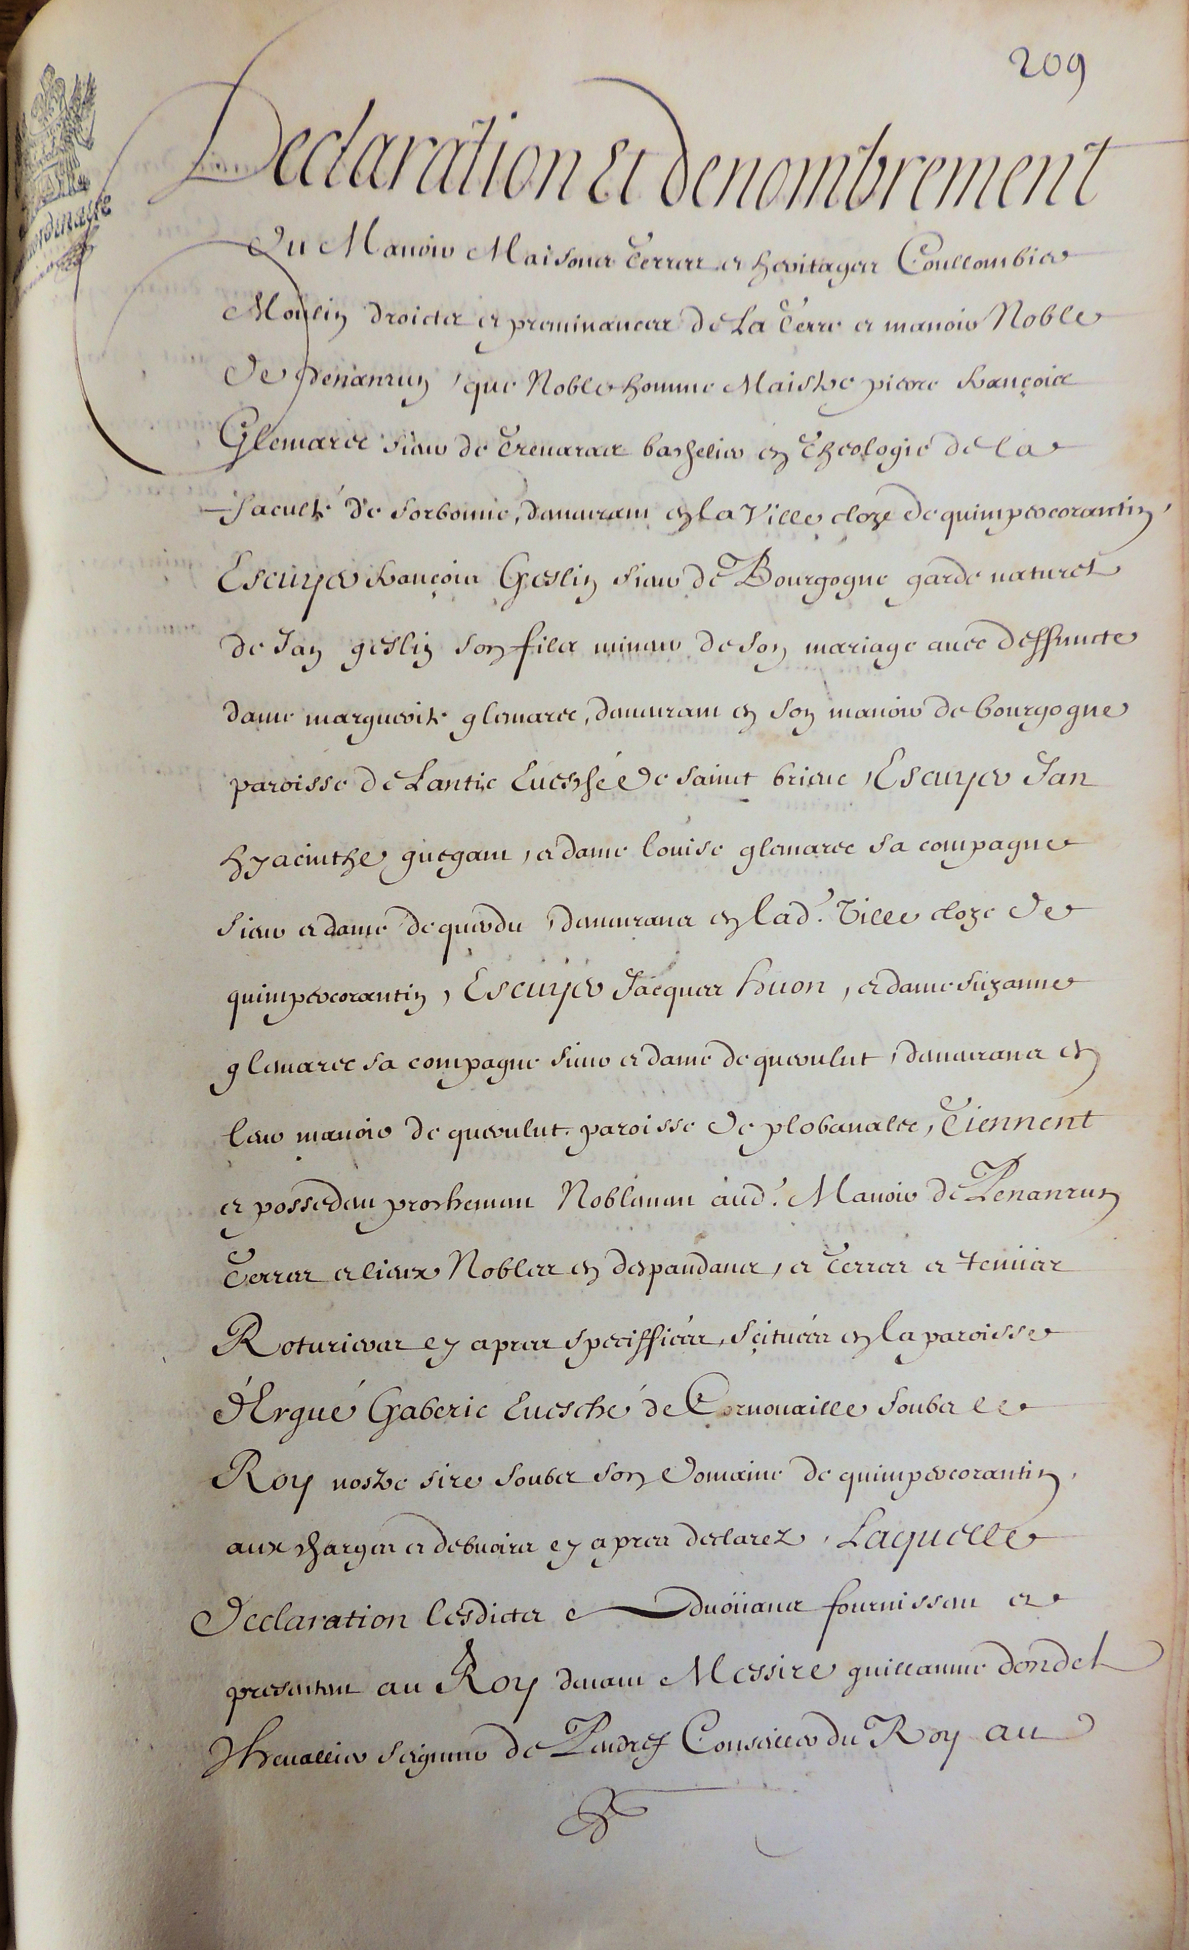 209
Declaration Et denombrement
Du Manoir Maisons Terres et heritages Coullombier
Moulin droictz et preminances de La Terre et manoir Noble
de Penanrun, que Noble homme Maistre pierre François
Glemarec sieur de bachelier en Theologie de la
faculté de Sorbonne, demeurant en la Ville close de quimpercorantin,
Escuyer François Geslin sieur de Bourgogne garde naturel
de Jan geslin son fils mineur de son mariage avec deffuncte
dame marguerite glemarec, demeurant en son manoir de bourgogne
paroisse de Lantic Evesché de saint brieuc, Escuyer Jan
hyacinthe guegant, et dame louise glemarec sa compagne
sieur et dame de querdu, demeurans en lad. Ville close de
quimpercorantin, Escuyer Jacques huon, et dame Suzanne
glemarec sa compagne sieur et dame de querulut, demeurans en
leur manoir de querulut paroisse de plobanalec, Tiennent
et possedent prochement Noblement aud. Manoir de Penanrun
Terres et lieux Nobles en despandans, et Terres et tenües
Roturieres cy apres speciffiées, scituées en la paroisse
d'Ergué Gaberic Evesché de Cornouaille soubz le
Roy nostre sire soubz son Domaine de quimpercorantin,
aux charges et debvoirs cy apres declarez, Laquelle
Declaration lesdictz advoüans fournissent et
presentent au Roy devant Messire guillaume dondel
Chevallier seigneur de Pendreff Conseiller du Roy au